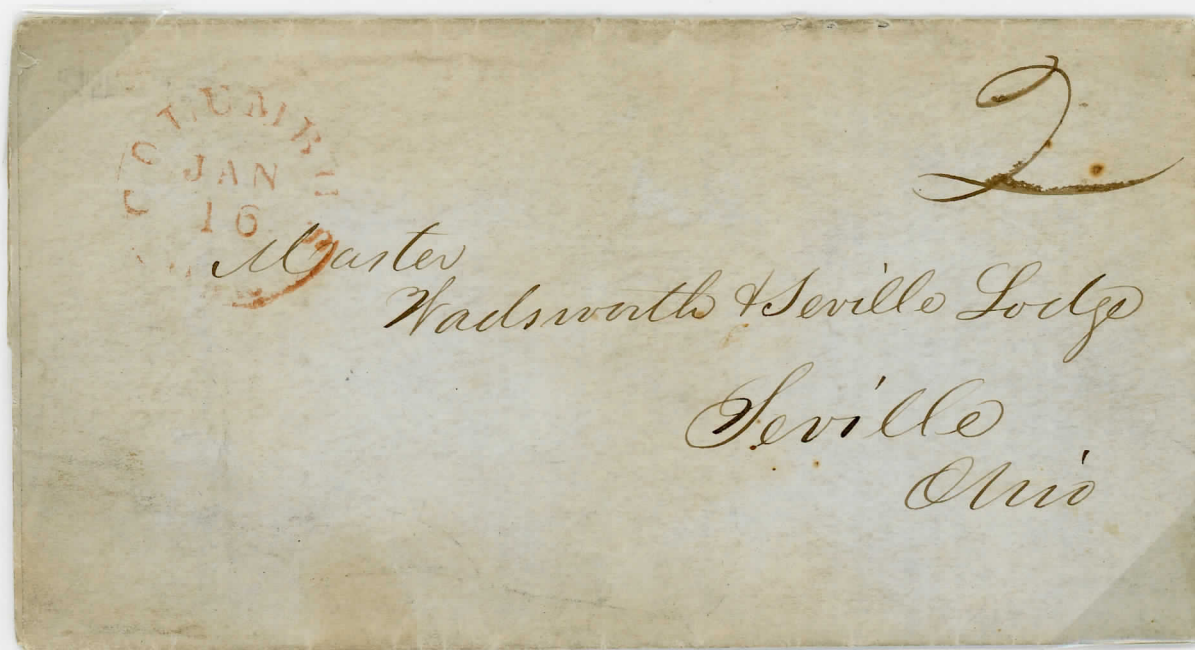 COLUMBUS
JAN
16
2
Master
Wadsworth & Seville Lodge
Seville
Ohio